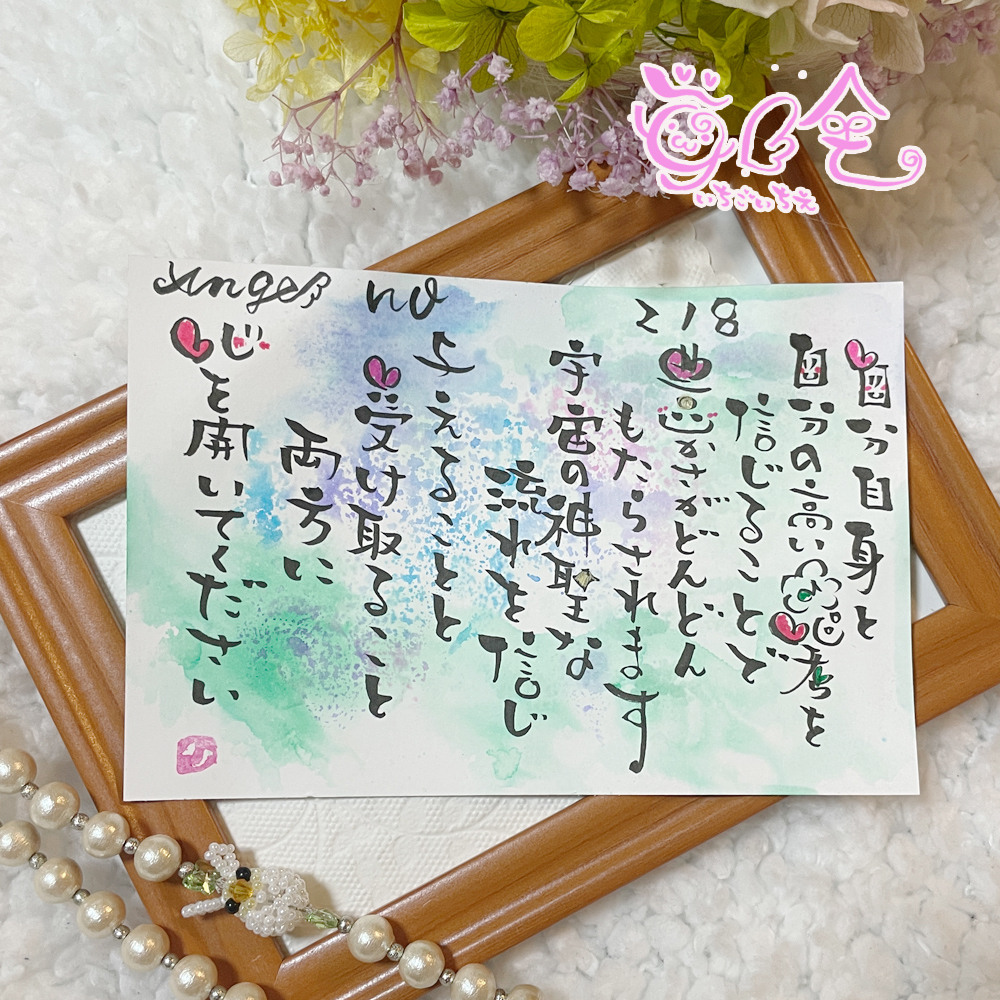 苺一会
いちごいちえ
Angel no
218
自分自身と
自分の高い思考を
信じることで
豊かさがどんどん
もたらされます
宇宙の神聖な
流れを信じ
与えることと
受け取ること
両方に
心を開いてください